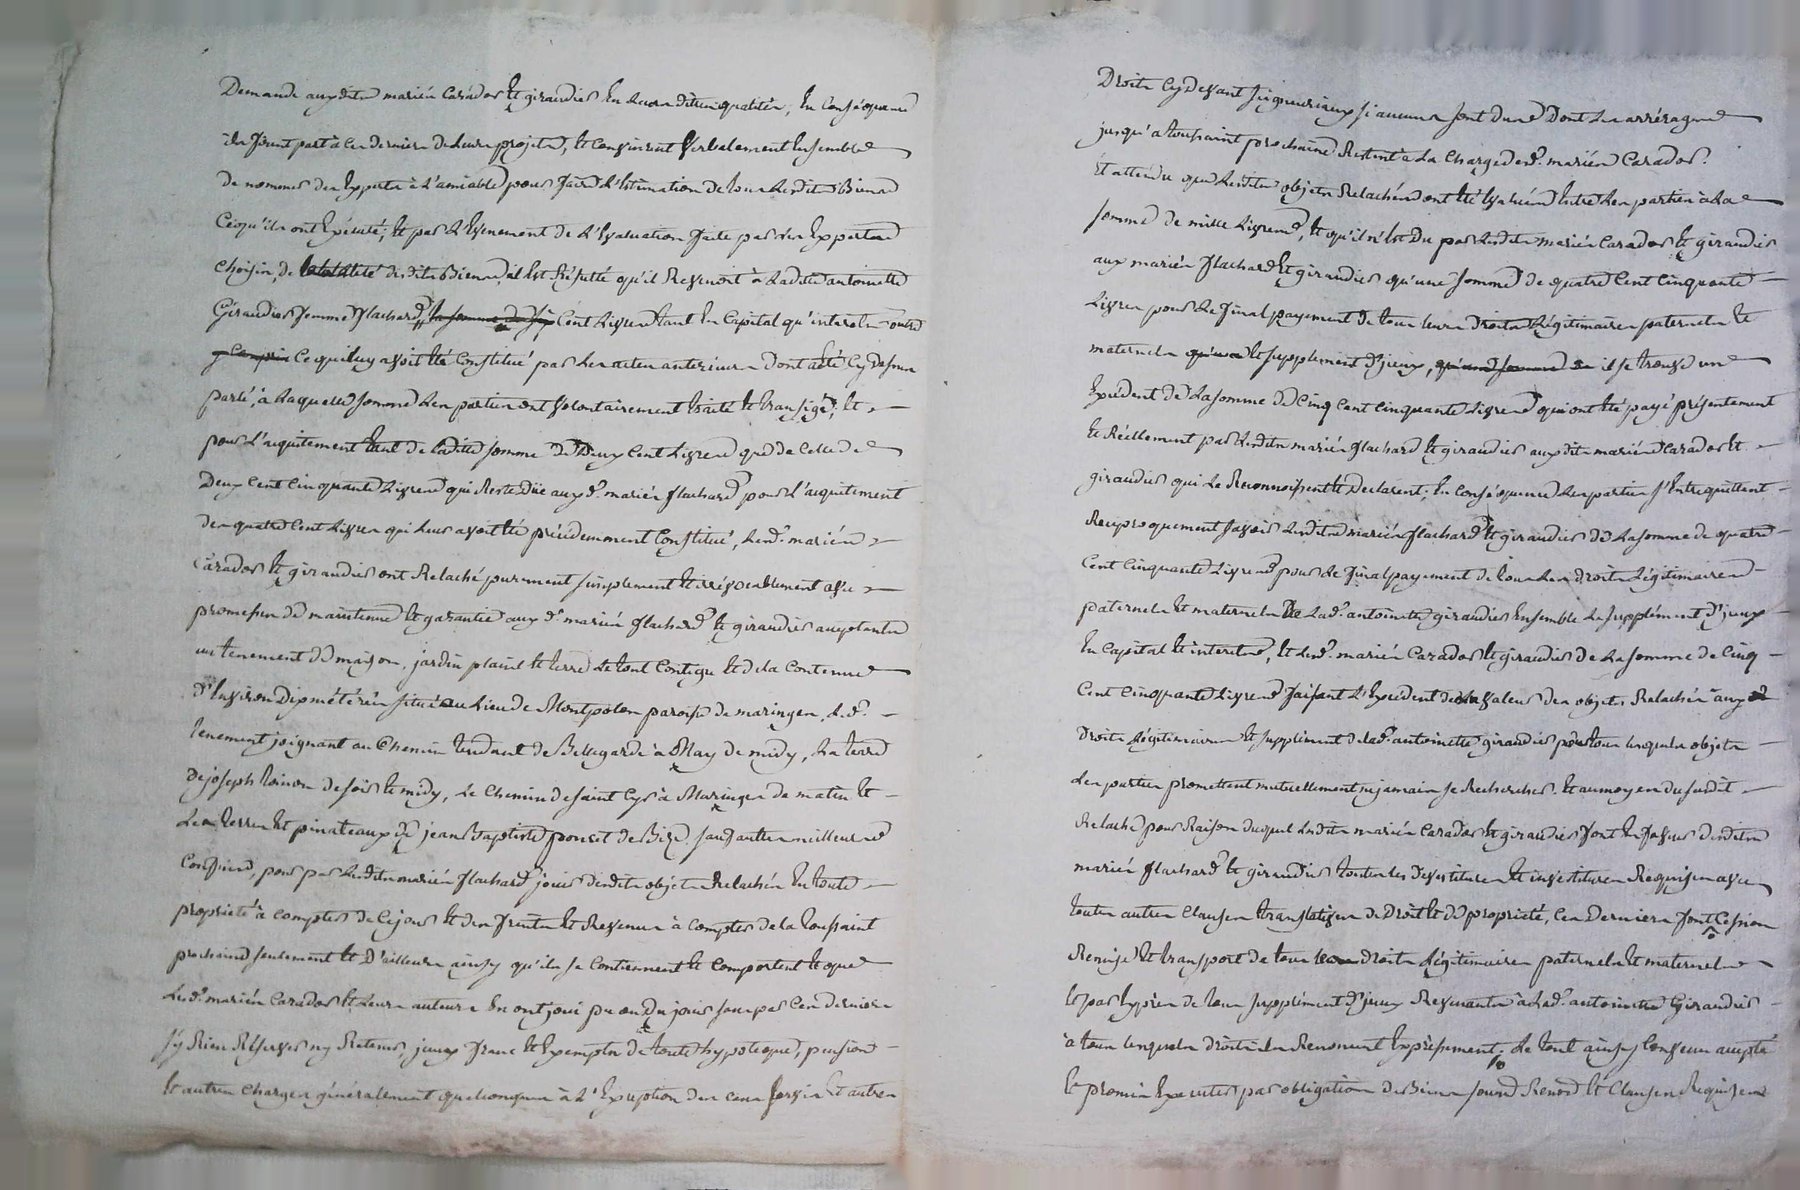 Demande auxdits mariés Carados et giraudier En Leurs dittes qualités, En Conséquence
ils firent part à Ces derniers de Leurs projets, et Convinrent Verbalement Ensemble
de nommer des Experts à L'amiable pour faire L'Estimation de tous Lesdits Biens
Ce qu'ils ont Exécuté; et par L'Evenement de L'Evaluation faite par les Experts
choisis, de la totalité desdits Biens, il Est Résulté qu'il Revenoit à Laditte antoinette
Giraudier femme flachard, la somme de Cent Livres tant En Capital qu'interets outre
Ce qui luy avoit été Constitué par Les actes anterieurs dont a été Cy dessus
parlé, à Laquelle somme Les parties ont volontairement traité et transigé; et
pour L'acquitement tant de laditte somme de Deux Cent Livres que de Celle de
Deux Cent Cinquante Livres qui Reste Düe auxd. mariés flachard pour L'acquitement
des quatre Cent Livres qui Leur avoit été précédemment Constitué, Lesd. mariés
Carados et giraudier ont Relaché purement simplement et irrévocablement avec
promesse de maintenue et garantie auxd. mariés flachard et giraudier acceptants
un tenement de maison, jardin plaine et terre Le tout Contigu et de la Contenue
d'Environ Dix métérés situé au Lieu de Montpolon paroisse de maringes, Led.
tenement joignant au Chemin tendant de Bellegarde à de midy, La terre
de joseph de soir et midy, Le Chemin de saint Cyr à Maringes de matin et
Les terres et pinateaux de jean Baptiste poncet de Bize. sauf autres meilleurs
Confins, pour par Lesdits mariés flachard jouir desdits objets Relachés En toute
propriété à Compter de Ce jour et des fruits et Revenus à Compter de la toussaint
prochaine seulement et D'ailleurs ainsy qu'ils se Contiennent et Comportent et que
Lesd. mariés Carados et Leurs auteurs En ont joui pu ou du jouir sans par Ces derniers
s'y Rien Réserver ny Retenir, jceux francs et Exempts de toute hypoteque, pension
et autres Charges généralement quelconques à L'Exception des Cens servis et autres
Droits Cy Devant seigneuriaux si aucuns sont dus Dont Les arrérages
jusqu'a toussaint prochaine Restent à La Charge desd. mariés Carados.
Et attendu que Lesdits objets Relachés ont été Evalués Entre Les parties à La
somme de mille Livres, et qu'il n'Est Du par Lesdits mariés Carados et giraudier
aux mariés flachard et giraudier qu'une somme de quatre Cent Cinquante
Livres pour Le final payement de tous leurs droits Légitimaires paternels et
maternels et supplement d'jceux, il se trouve un
Excédent de La somme de Cinq Cent Cinquante Livres qui ont été payé présentement
et Réellement par Lesdits mariés flachard et giraudier auxdits mariés Carados et
giraudier qui Le Reconnoissent et Declarent; En Conséquence Les parties s'Entrequittent
Reciproquement savoir Lesdits mariés flachard et giraudier de La somme de quatre
Cent Cinquante Livres pour Le final payement de tous Les droits Légitimaires
paternels et maternels de Lad. antoinette giraudier Ensemble Le supplément d'jceux
En Capital et interets, et Lesd. mariés Carados et giraudier de La somme de Cinq
Cent Cinquante Livres faisant L'Excédent de La valeur des objets Relachés aux
Droits Légitimaires et supplément de lad. antoinette giraudier pour tous lesquels objets
Les parties promettent mutuellement ne jamais se Rechercher. Et au moyen du susdit
Relaché pour Raison duquel Lesdits mariés Carados et giraudier font En faveur desdits
mariés flachard et giraudier toutes les devestitures et investitures Requises avec
toutes autres Clauses translatives de Droit et de propriété, Ces Derniers font Cession
Remise et transport de tous droits Légitimaires paternels et maternels
et par Exprès de tous supplément d'jceux Revenants à Lad. antoinette Giraudier
à tous lesquels droits ils Renoncent Expressement; Le tout ainsy Convenu accepté
et promis Executer par obligation de Biens soumis Renon et Clauses Requises